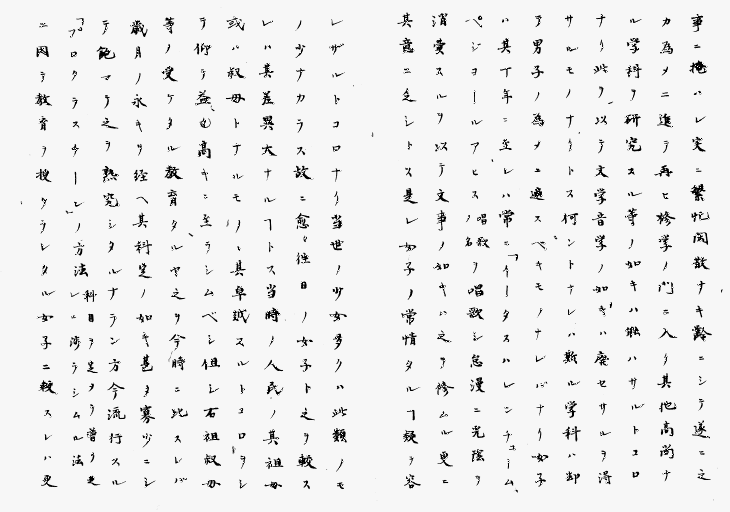 事ニ掩ハレ実ニ繁忙閑散ナキ齢ニシテ遂ニ之
カ為メニ進テ再ヒ修学ノ門ニ入リ其他高尚ナ
ル学科ヲ研究スル等ノ如キハ能ハサルトコロ
ナリ此ヲ以テ文学音学ノ如キハ廃セサルヲ得
サルモノナリトス何ントナレハ斯ル学科ハ却
テ男子ノ為メニ適スベキモノナレバナリ女子
ハ其丁年ニ至レハ常ニ「イータスハレンチユーム、
ペジヨールアヒス」唱歌ノ名ヲ唱歌シ怠漫ニ光陰ヲ
消費スルヲ以テ文事ノ如キハ之ヲ修ムル更ニ
其意ニ乏シトス是レ女子ノ常情タルヿ疑ヲ容
レザルトコロナリ当世ノ少女多クハ此類ノモ
ノ少ナカラス故ニ愈々往日ノ女子ト之ヲ較ス
レハ其差異大ナルヿトス当時ノ人民ノ其祖母
或ハ叔母トナルモノハ其卓越スルトコロヲシ
テ仰テ益々高キニ至ラシムベシ但シ右祖叔母
等ノ受ケタル教育タルヤ之ヲ今時ニ比スレバ
歳月ノ永キヲ経ヘ其科定ノ如キ甚タ寡少ニシ
テ飽マテ之ヲ熟究シタルナラン方今流行スル
「プロクラスチーレ」ノ方法科目ヲ定メテ曽ヲ更レニ渉ラシムル法
ニ因テ教育ヲ授ケラレタル女子ニ較スレハ更